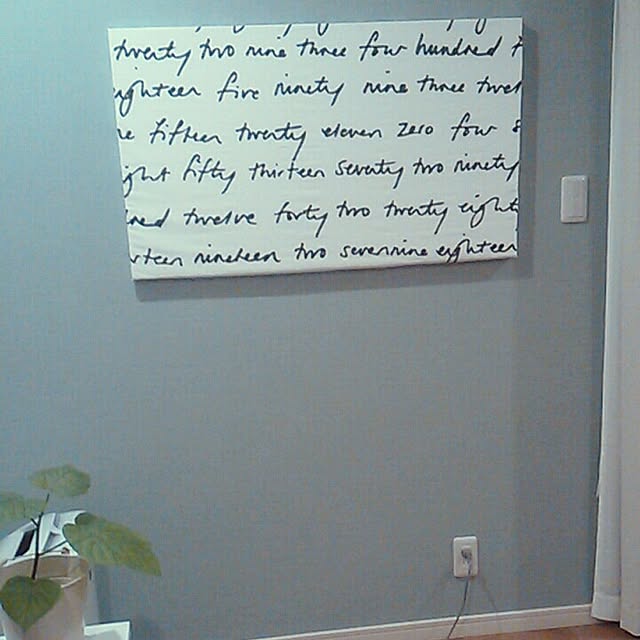 twenty two nine three four hundred
ghteen five ninety nine three twel
fifteen twenty eleven zero four
ght fifty thirteen seventy two ninety
red twelve forty two twenty eight
rteen nineteen two sevennine eighteen